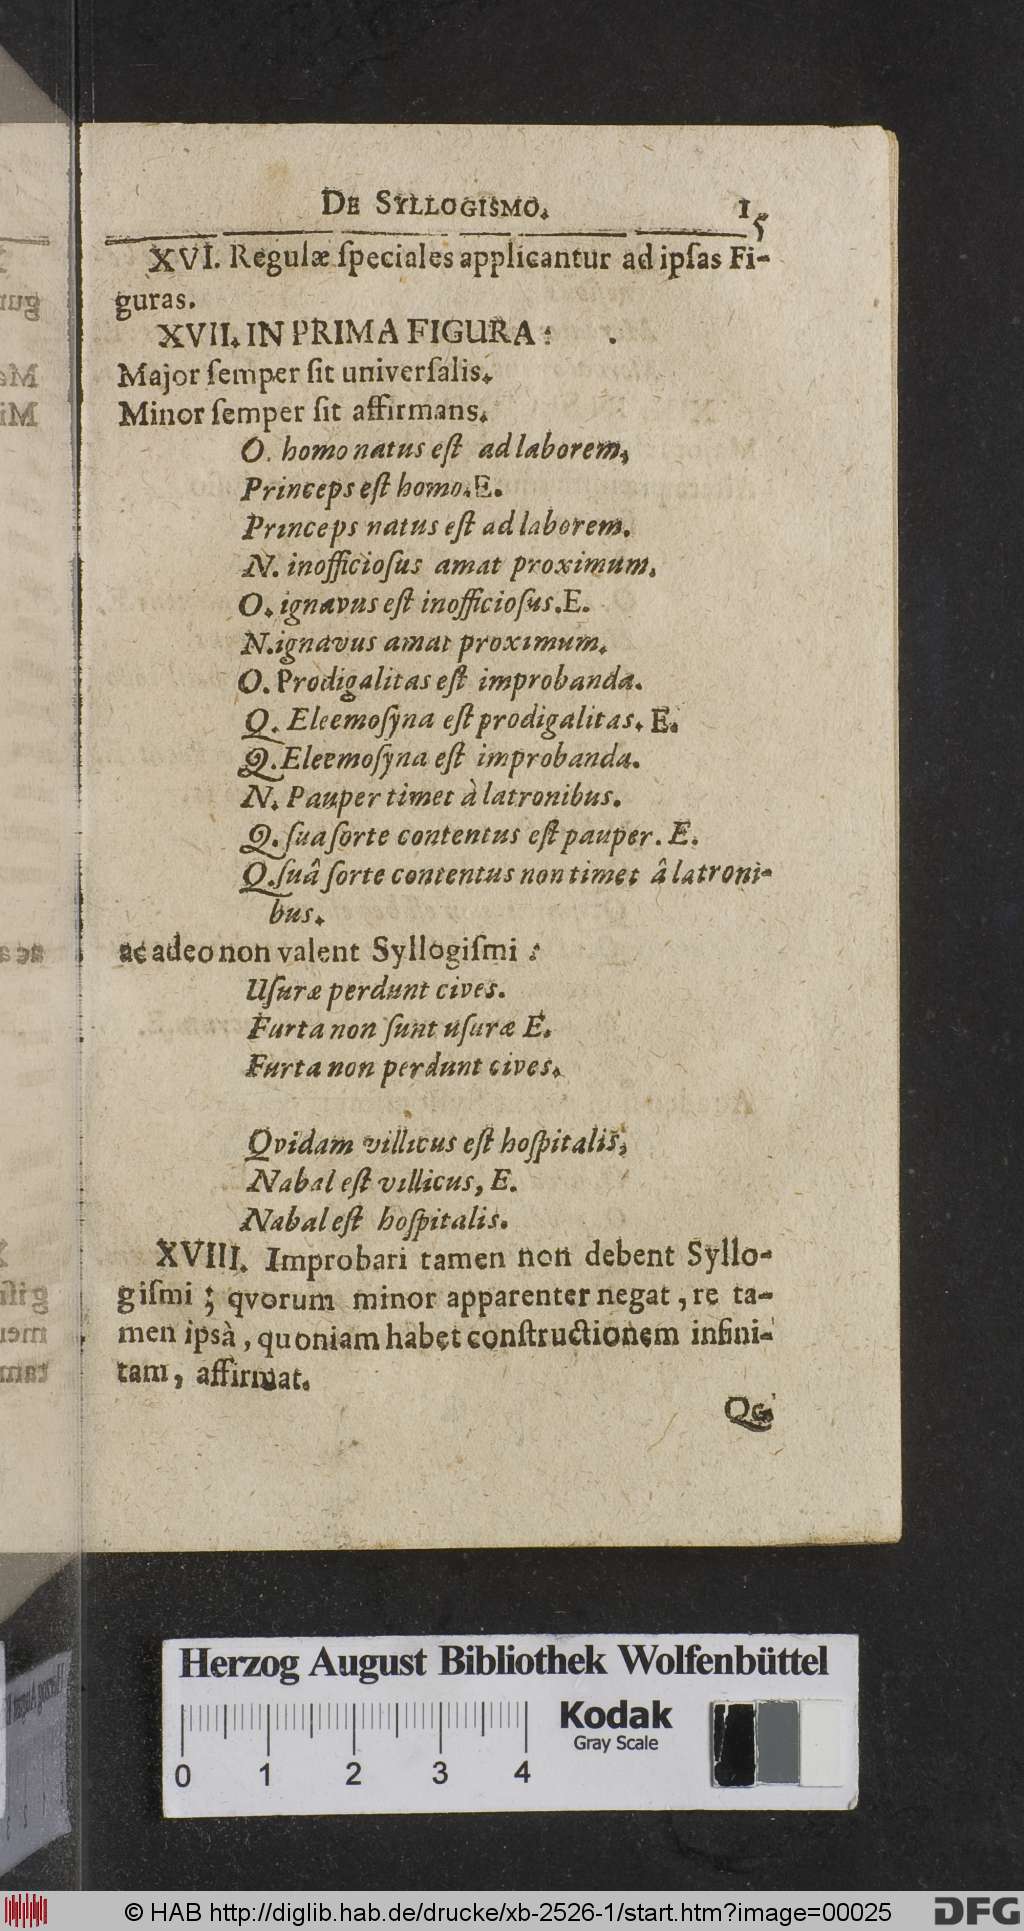 DE SYLLOGISMO. 15
XVI. Regulæ ſpeciales applicantur ad ipſas Fi-
guras.
XVII. IN PRIMA FIGURA:
Major ſemper ſit univerſalis.
Minor ſemper ſit affirmans.
O. homo natus eſt ad laborem,
Princeps eſt homo. E.
Princeps natus eſt ad laborem.
N. inofficioſus amat proximum.
O. ignavus eſt inofficioſus. E.
N. ignavus amat proximum.
O. Prodigalitas eſt improbanda.
Q. Eleemoſyna eſt prodigalitas. E.
Q. Eleemoſyna eſt improbanda.
N. Pauper timet à latronibus.
Q. ſua ſorte contentus eſt pauper. E.
Q. ſuâ ſorte contentus non timet â latroni-
bus.
ac adeo non valent Syllogiſmi:
Uſuræ perdunt cives.
Furta non ſunt uſuræ E.
Furta non perdunt cives.
Qvidam villicus eſt hoſpitalis,
Nabal eſt villicus, E.
Nabal eſt hoſpitalis.
XVIII. Improbari tamen non debent Syllo-
giſmi; qvorum minor apparenter negat, re ta-
men ipsà, quoniam habet conſtructionem infini-
tam, affirmat.
Herzog August Bibliothek Wolfenbüttel
Kodak
Gray Scale
0 1 2 3 4
© HAB http://diglib.hab.de/drucke/xb-2526-1/start.htm?image=00025
DFG